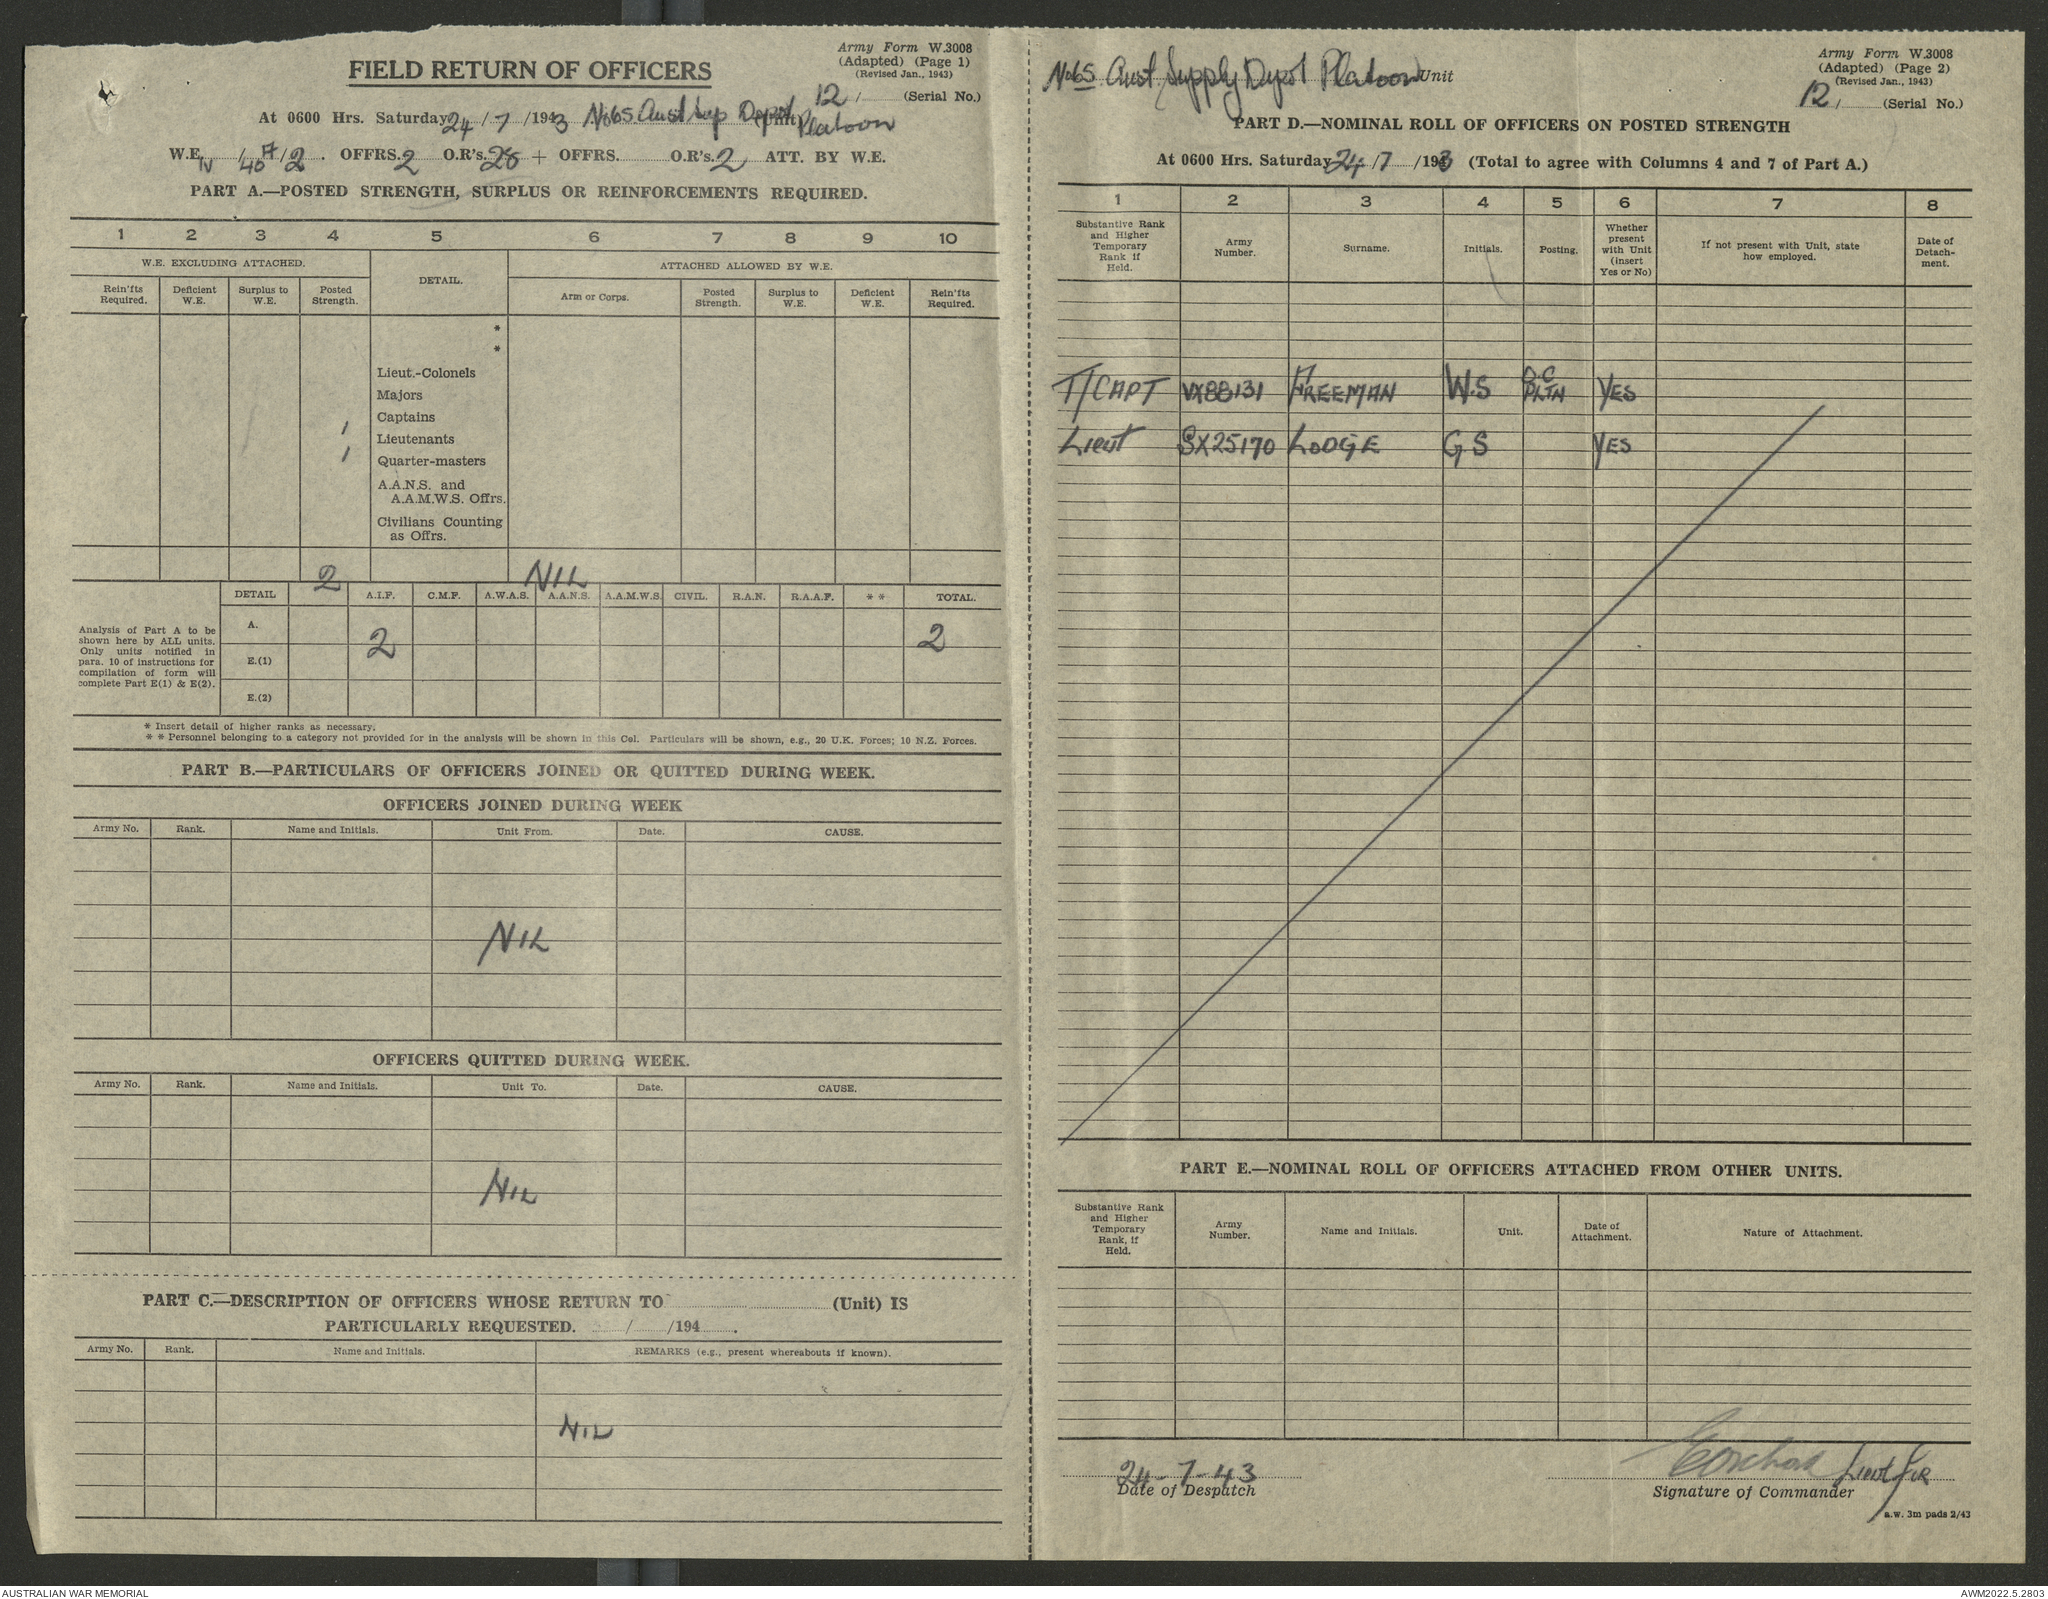 Army Form W.3008
(Adapted) (Page 1)
(Revised Jan., 1943)
FIELD RETURN OF OFFICERS
12 / (Serial No.)
At 0600 Hrs. Saturday 24 / 7 / 1943 No 65 Aust Sup Depot Platoon (Unit)
W.E. IV / 40A / 2 . OFFRS. 2 O.R's. 28 + OFFRS. O.R's. 2 ATT. BY W.E.
PART A.—POSTED STRENGTH, SURPLUS OR REINFORCEMENTS REQUIRED.
1 2 3 4 5 6 7 8 9 10
W.E. EXCLUDING ATTACHED. DETAIL. ATTACHED ALLOWED BY W.E.
Rein'fts Required. Deficient W.E. Surplus to W.E. Posted Strength. Arm or Corps. Posted Strength. Surplus to W.E. Deficient W.E. Rein'fts Required.
*
*
Lieut.-Colonels
Majors
Captains
1 Lieutenants
1 Quarter-masters
A.A.N.S. and
A.A.M.W.S. Offrs.
Civilians Counting
as Offrs.
2 NIL
DETAIL A.I.F. C.M.F. A.W.A.S. A.A.N.S. A.A.M.W.S. CIVIL. R.A.N. R.A.A.F. * * TOTAL.
Analysis of Part A to be
shown here by ALL units.
Only units notified in
para. 10 of instructions for
compilation of form will
complete Part E(1) & E(2).
A. 2 2
E.(1)
E.(2)
* Insert detail of higher ranks as necessary.
* * Personnel belonging to a category not provided for in the analysis will be shown in this Col. Particulars will be shown, e.g., 20 U.K. Forces; 10 N.Z. Forces.
PART B.—PARTICULARS OF OFFICERS JOINED OR QUITTED DURING WEEK.
OFFICERS JOINED DURING WEEK
Army No. Rank. Name and Initials. Unit From. Date. CAUSE.
NIL
OFFICERS QUITTED DURING WEEK.
Army No. Rank. Name and Initials. Unit To. Date. CAUSE.
NIL
PART C.—DESCRIPTION OF OFFICERS WHOSE RETURN TO (Unit) IS
PARTICULARLY REQUESTED. / /194 .
Army No. Rank. Name and Initials. REMARKS (e.g., present whereabouts if known).
NIL
No 65 Aust Supply Depot Platoon Unit
Army Form W.3008
(Adapted) (Page 2)
(Revised Jan., 1943)
12 / (Serial No.)
PART D.—NOMINAL ROLL OF OFFICERS ON POSTED STRENGTH
At 0600 Hrs. Saturday 24 / 7 / 1943 (Total to agree with Columns 4 and 7 of Part A.)
1 2 3 4 5 6 7 8
Substantive Rank and Higher Temporary Rank if Held. Army Number. Surname. Initials. Posting. Whether present with Unit (insert Yes or No) If not present with Unit, state how employed. Date of Detach-ment.
T/CAPT VX88131 FREEMAN W.S O.C PLTN YES
Lieut SX25170 LODGE G S YES
PART E.—NOMINAL ROLL OF OFFICERS ATTACHED FROM OTHER UNITS.
Substantive Rank and Higher Temporary Rank, if Held. Army Number. Name and Initials. Unit. Date of Attachment. Nature of Attachment.
24-7-43 Lieut for
Date of Despatch Signature of Commander
a.w. 3m pads 2/43
AUSTRALIAN WAR MEMORIAL AWM2022.5.2803